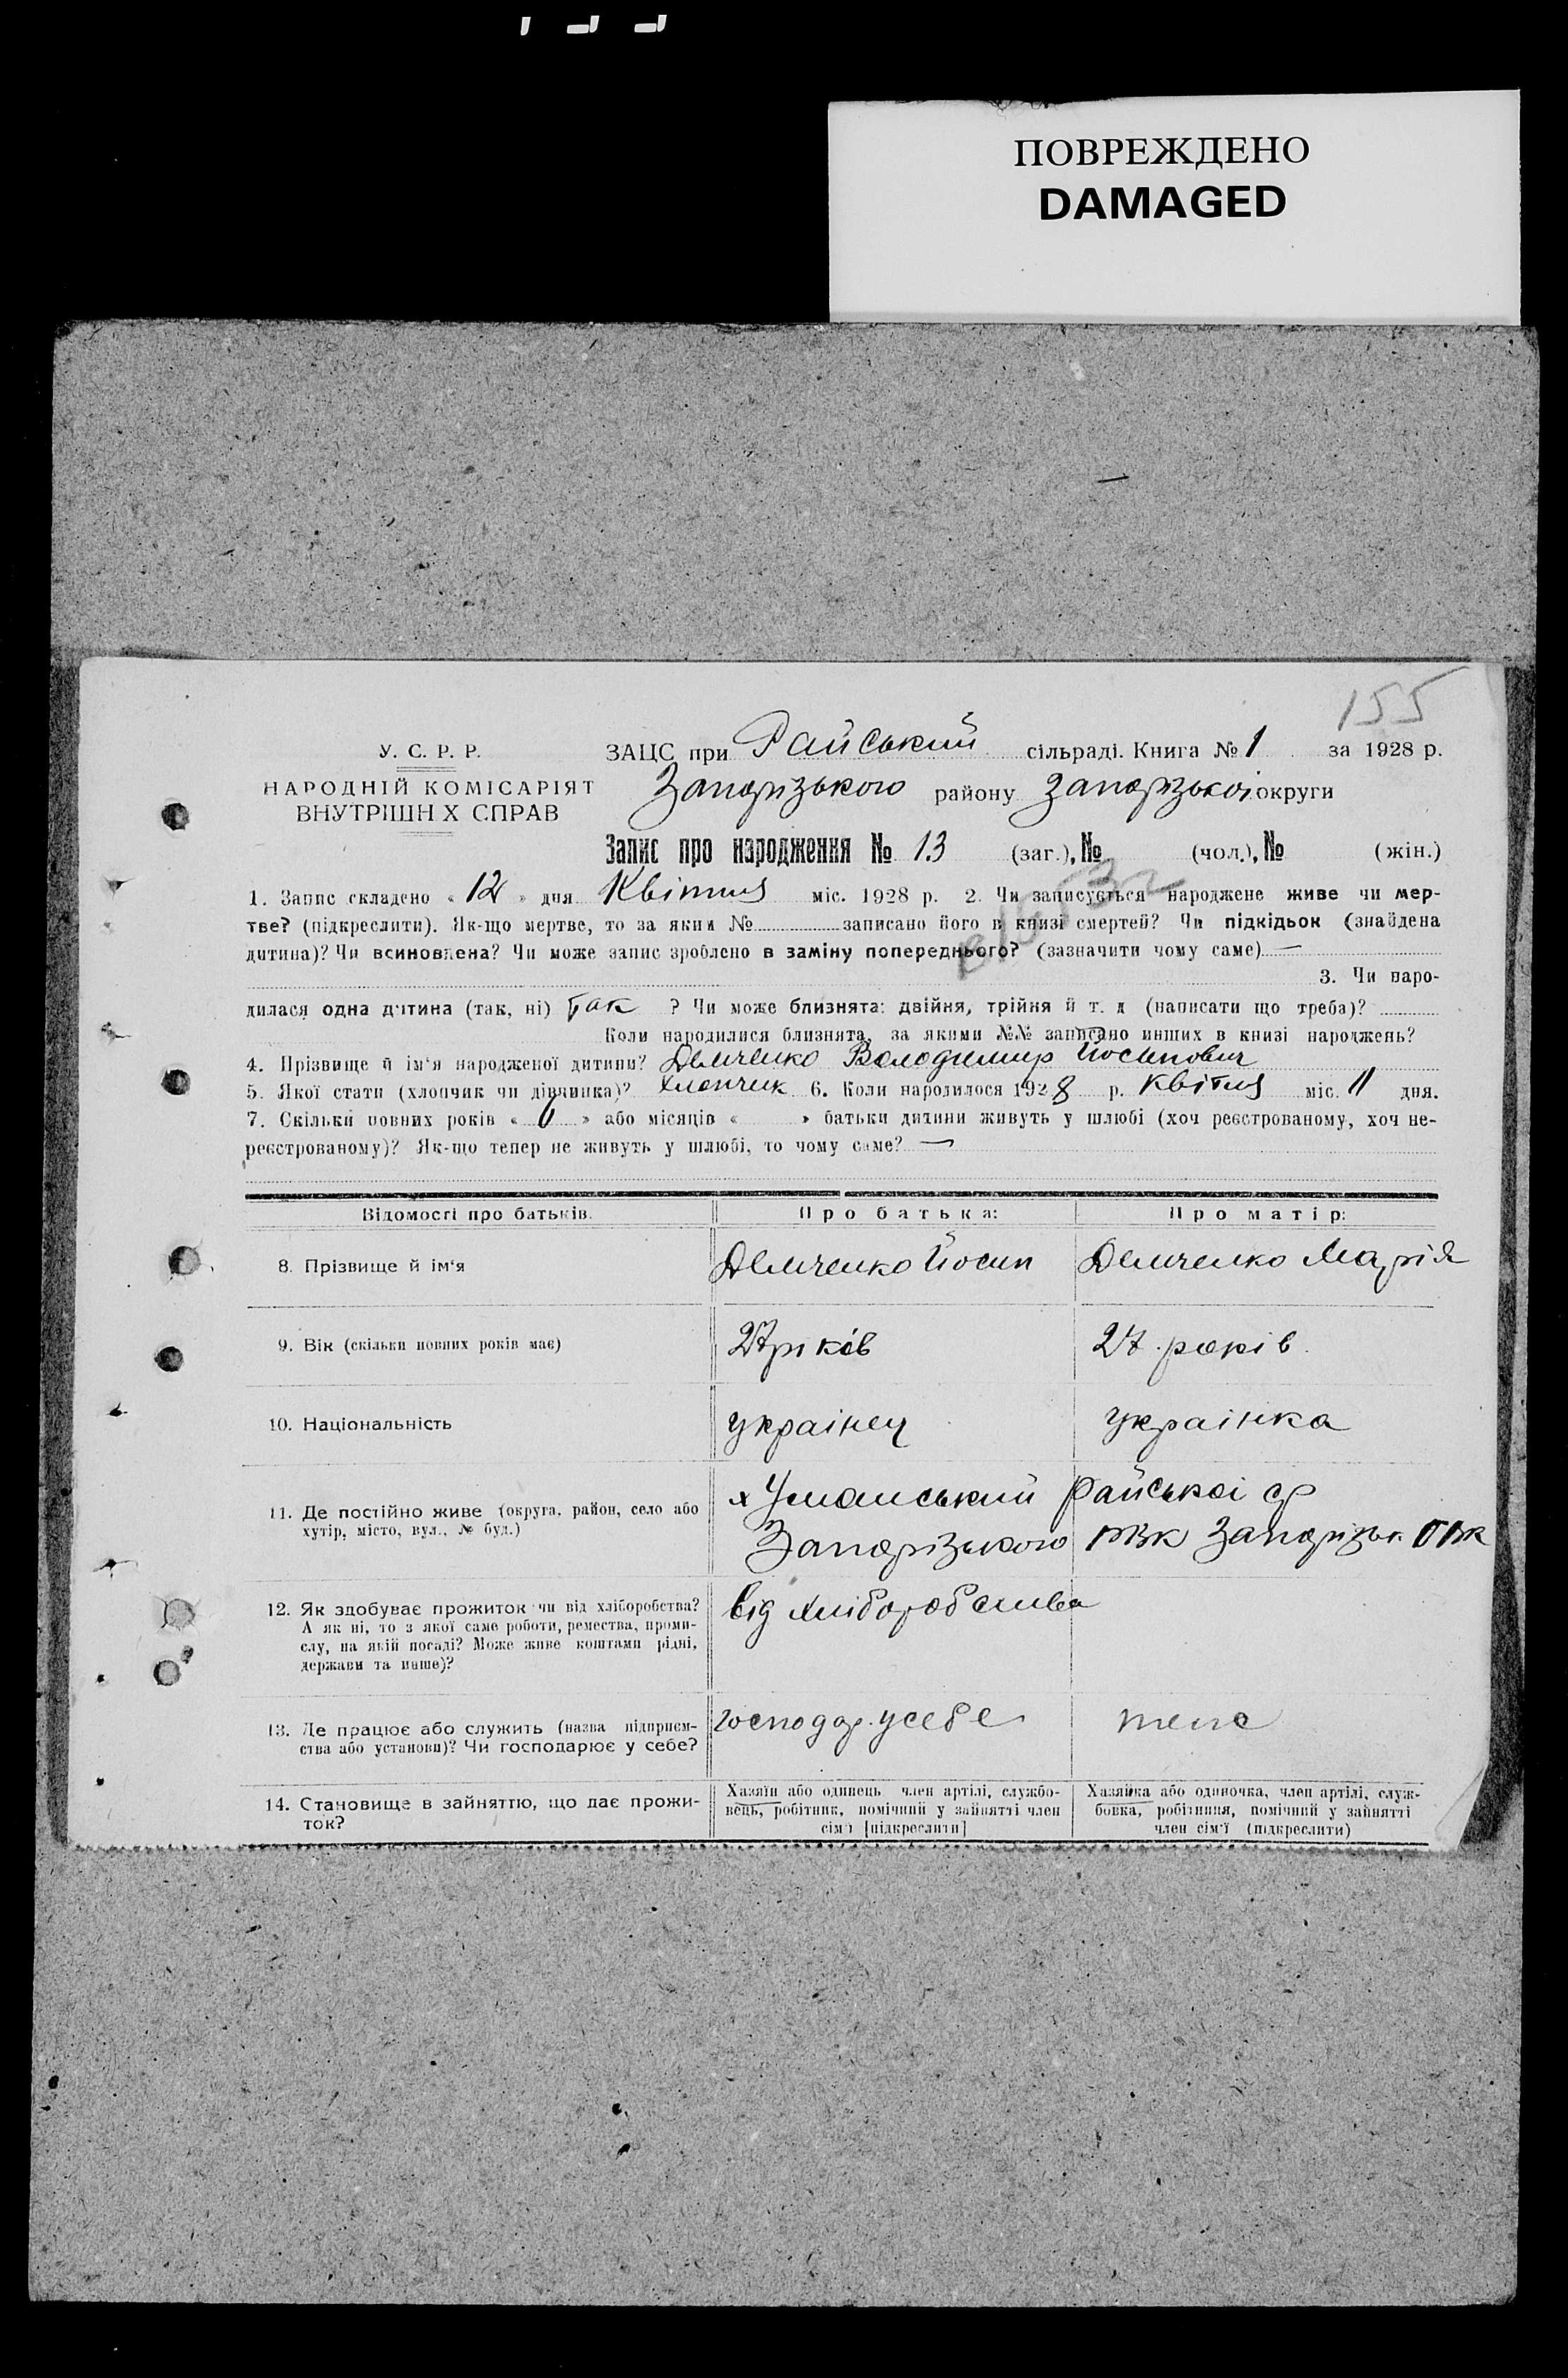 ПОВРЕЖДЕНО
DAMAGED
155
У. С. Р. Р.
НАРОДНІЙ КОМІСАРІЯТ
ВНУТРІШН Х СПРАВ
ЗАЦС при Райський сільраді. Книга № 1 за 1928 р.
Запорізького району Запорізької округи
Запис про народження № 13 (заг.), № (чол.), № (жін.)
1. Запис складено « 12 » дня Квітня міс. 1928 р. 2. Чи записується народжене живе чи мер-
тве? (підкреслити). Як-що мертве, то за яким № записано його в книзі смертей? Чи підкідьок (знайдена
дитина)? Чи всиновлена? Чи може запис зроблено в заміну попереднього? (зазначити чому саме) —
3. Чи наро-
дилася одна дитина (так, ні) так ? Чи може близнята: двійня, трійня й т. д (написати що треба)?
Коли народилися близнята, за якими №№ записано инших в книзі народжень?
4. Прізвище й ім‘я народженої дитини? Демченко Володимир Йосипович
5. Якої стати (хлопчик чи дівчинка)? хлопчик 6. Коли народилося 1928 р. Квітня міс. 11 дня.
7. Скільки повних років « 6 » або місяців « » батьки дитини живуть у шлюбі (хоч реєстрованому, хоч не-
реєстрованому)? Як-що тепер не живуть у шлюбі, то чому саме? —
Відомості про батьків. Про батька: Про матір:
8. Прізвище й ім‘я Демченко Йосип Демченко Марія
9. Вік (скільки повних років має) 27 років 27 років.
10. Національність українец українка
11. Де постійно живе (округа, район, село або
хутір, місто, вул., № буд.)
х Уманський Райської ср
Запорізького РВК Запорізьк ОВК
12. Як здобуває прожиток чи від хліборобства?
А як ні, то з якої саме роботи, ремества, проми-
слу, на якій посаді? Може живе коштами рідні,
держави та инше)?
від хліборобства
13. Де працює або служить (назва підприєм-
ства або установи)? Чи господарює у себе?
господар. усебе теж
14. Становище в зайняттю, що дає прожи-
ток?
Хазяїн або одинець член артілі, службо-
вець, робітник, помічний у зайнятті член
сім‘ї [підкреслити]
Хазяйка або одиночка, член артілі, служ-
бовка, робітниця, помічний у зайнятті
член сім‘ї (підкреслити)